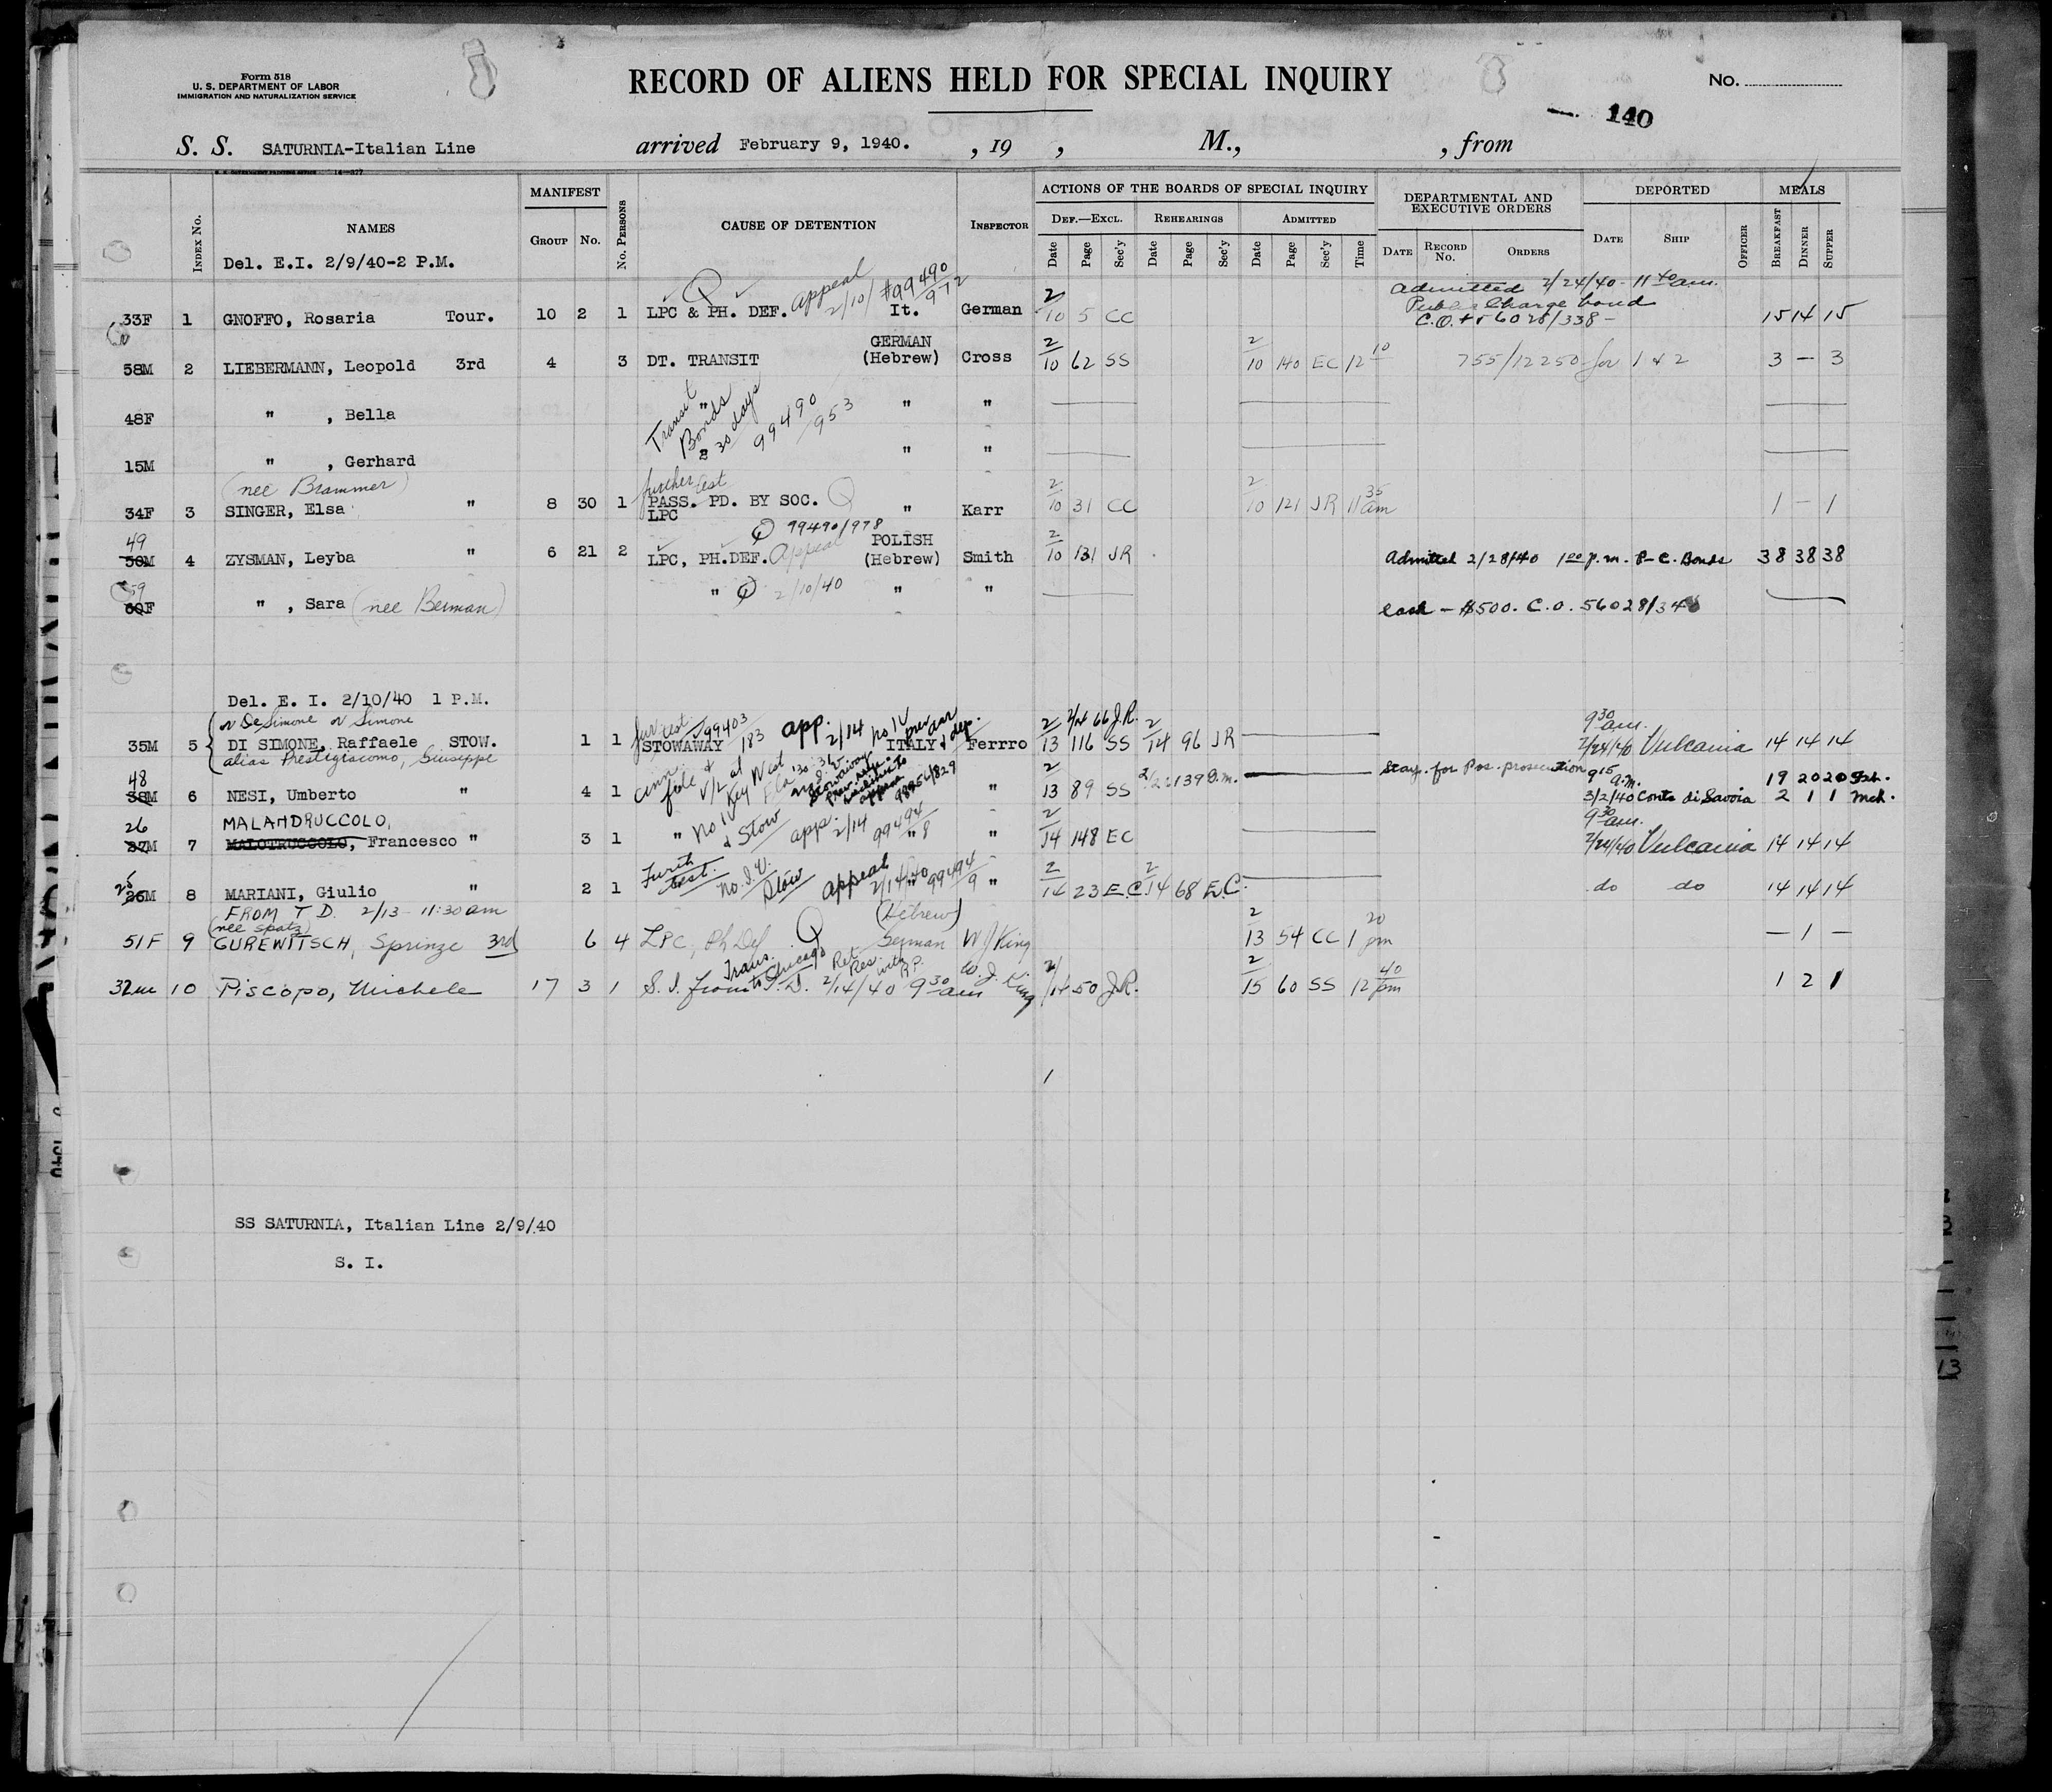 Form 518
U. S. DEPARTMENT OF LABOR
IMMIGRATION AND NATURALIZATION SERVICE
RECORD OF ALIENS HELD FOR SPECIAL INQUIRY
No.
140
S. S. SATURNIA-Italian Line arrived February 9, 1940. , 19 , M., , from
INDEX No. NAMES MANIFEST GROUP No. No. PERSONS CAUSE OF DETENTION INSPECTOR
ACTIONS OF THE BOARDS OF SPECIAL INQUIRY DEF.—EXCL. Date Page Sec'y REHEARINGS Date Page Sec'y ADMITTED Date Page Sec'y Time
DEPARTMENTAL AND EXECUTIVE ORDERS DATE RECORD No. ORDERS DEPORTED DATE SHIP OFFICER MEALS BREAKFAST DINNER SUPPER
Del. E.I. 2/9/40-2 P.M.
Appeal 2/10/ #99490/972 Admitted 2/24/40 - 11 40 am.
Public Charge bond
33F 1 GNOFFO, Rosaria Tour. 10 2 1 LPC & PH. DEF. It. German 2/10 5 CC C.O. 56028/338 - 15 14 15
GERMAN
58M 2 LIEBERMANN, Leopold 3rd 4 3 DT. TRANSIT (Hebrew) Cross 2/10 62 SS 2/10 140 EC 12 10 755/12250 for 1 & 2 3 — 3
48F " , Bella " " "
Transit Bonds 30 days 99490/953
15M " , Gerhard " "
(nee Brammer) further test
34F 3 SINGER, Elsa " 8 30 1 PASS. PD. BY SOC. " Karr 2/10 31 CC 2/10 121 JR 11 35 am 1 — 1
LPC
99490/978
49 POLISH
50M 4 ZYSMAN, Leyba " 6 21 2 LPC, PH.DEF. Appeal (Hebrew) Smith 2/10 131 JR Admitted 2/28/40 1 00 p.m. P-C. Bonds 38 38 38
59
60F " , Sara (nee Berman) " 2/10/40 " " each - $500. C.O. 56028/34
Del. E. I. 2/10/40 1 P.M.
or DeSimone or Simone
35M 5 DI SIMONE, Raffaele STOW. 1 1 STOWAWAY 99403/183 app. 2/14 no IV ITALY Ferrro 2/13 116 SS 2/14 66 J.R. 2/14 96 JR 9 30 am. 2/24/40 Vulcania 14 14 14
alias Prestigiacomo, Giuseppe
48
38M 6 NESI, Umberto " 4 1 Key West " 2/13 89 SS 139 Stay. for Pos. prosecution 9 15 a.m. 3/2/40 Conte di Savoia 19 20 20 Feb.
2 1 1 Mch.
MALANDRUCCOLO,
26
27M 7 MALOTRUCCOLO, Francesco " 3 1 " No IV & Stow app. 2/14 99494/8 " " 2/14 148 EC 9 30 am. 2/24/40 Vulcania 14 14 14
25
26M 8 MARIANI, Giulio " 2 1 Furth test. no. I.V. Stow appeal 2/14/40 99494/9 " " 2/14 23 E.C. 2/14 68 E.C. do do 14 14 14
FROM T D. 2/13 - 11:30 am
(nee Spatz) (Hebrew)
51F 9 GUREWITSCH, Sprinze 3rd 6 4 LPC, Ph Def German W J King 2/13 54 CC 1 20 pm — 1 —
Trans. to Chicago
32m 10 Piscopo, Michele 17 3 1 S. I. from T.D. 2/14/40 9 30 am W. J. King 2/14 50 J.R. 2/15 60 SS 12 40 pm 1 2 1
SS SATURNIA, Italian Line 2/9/40
S. I.